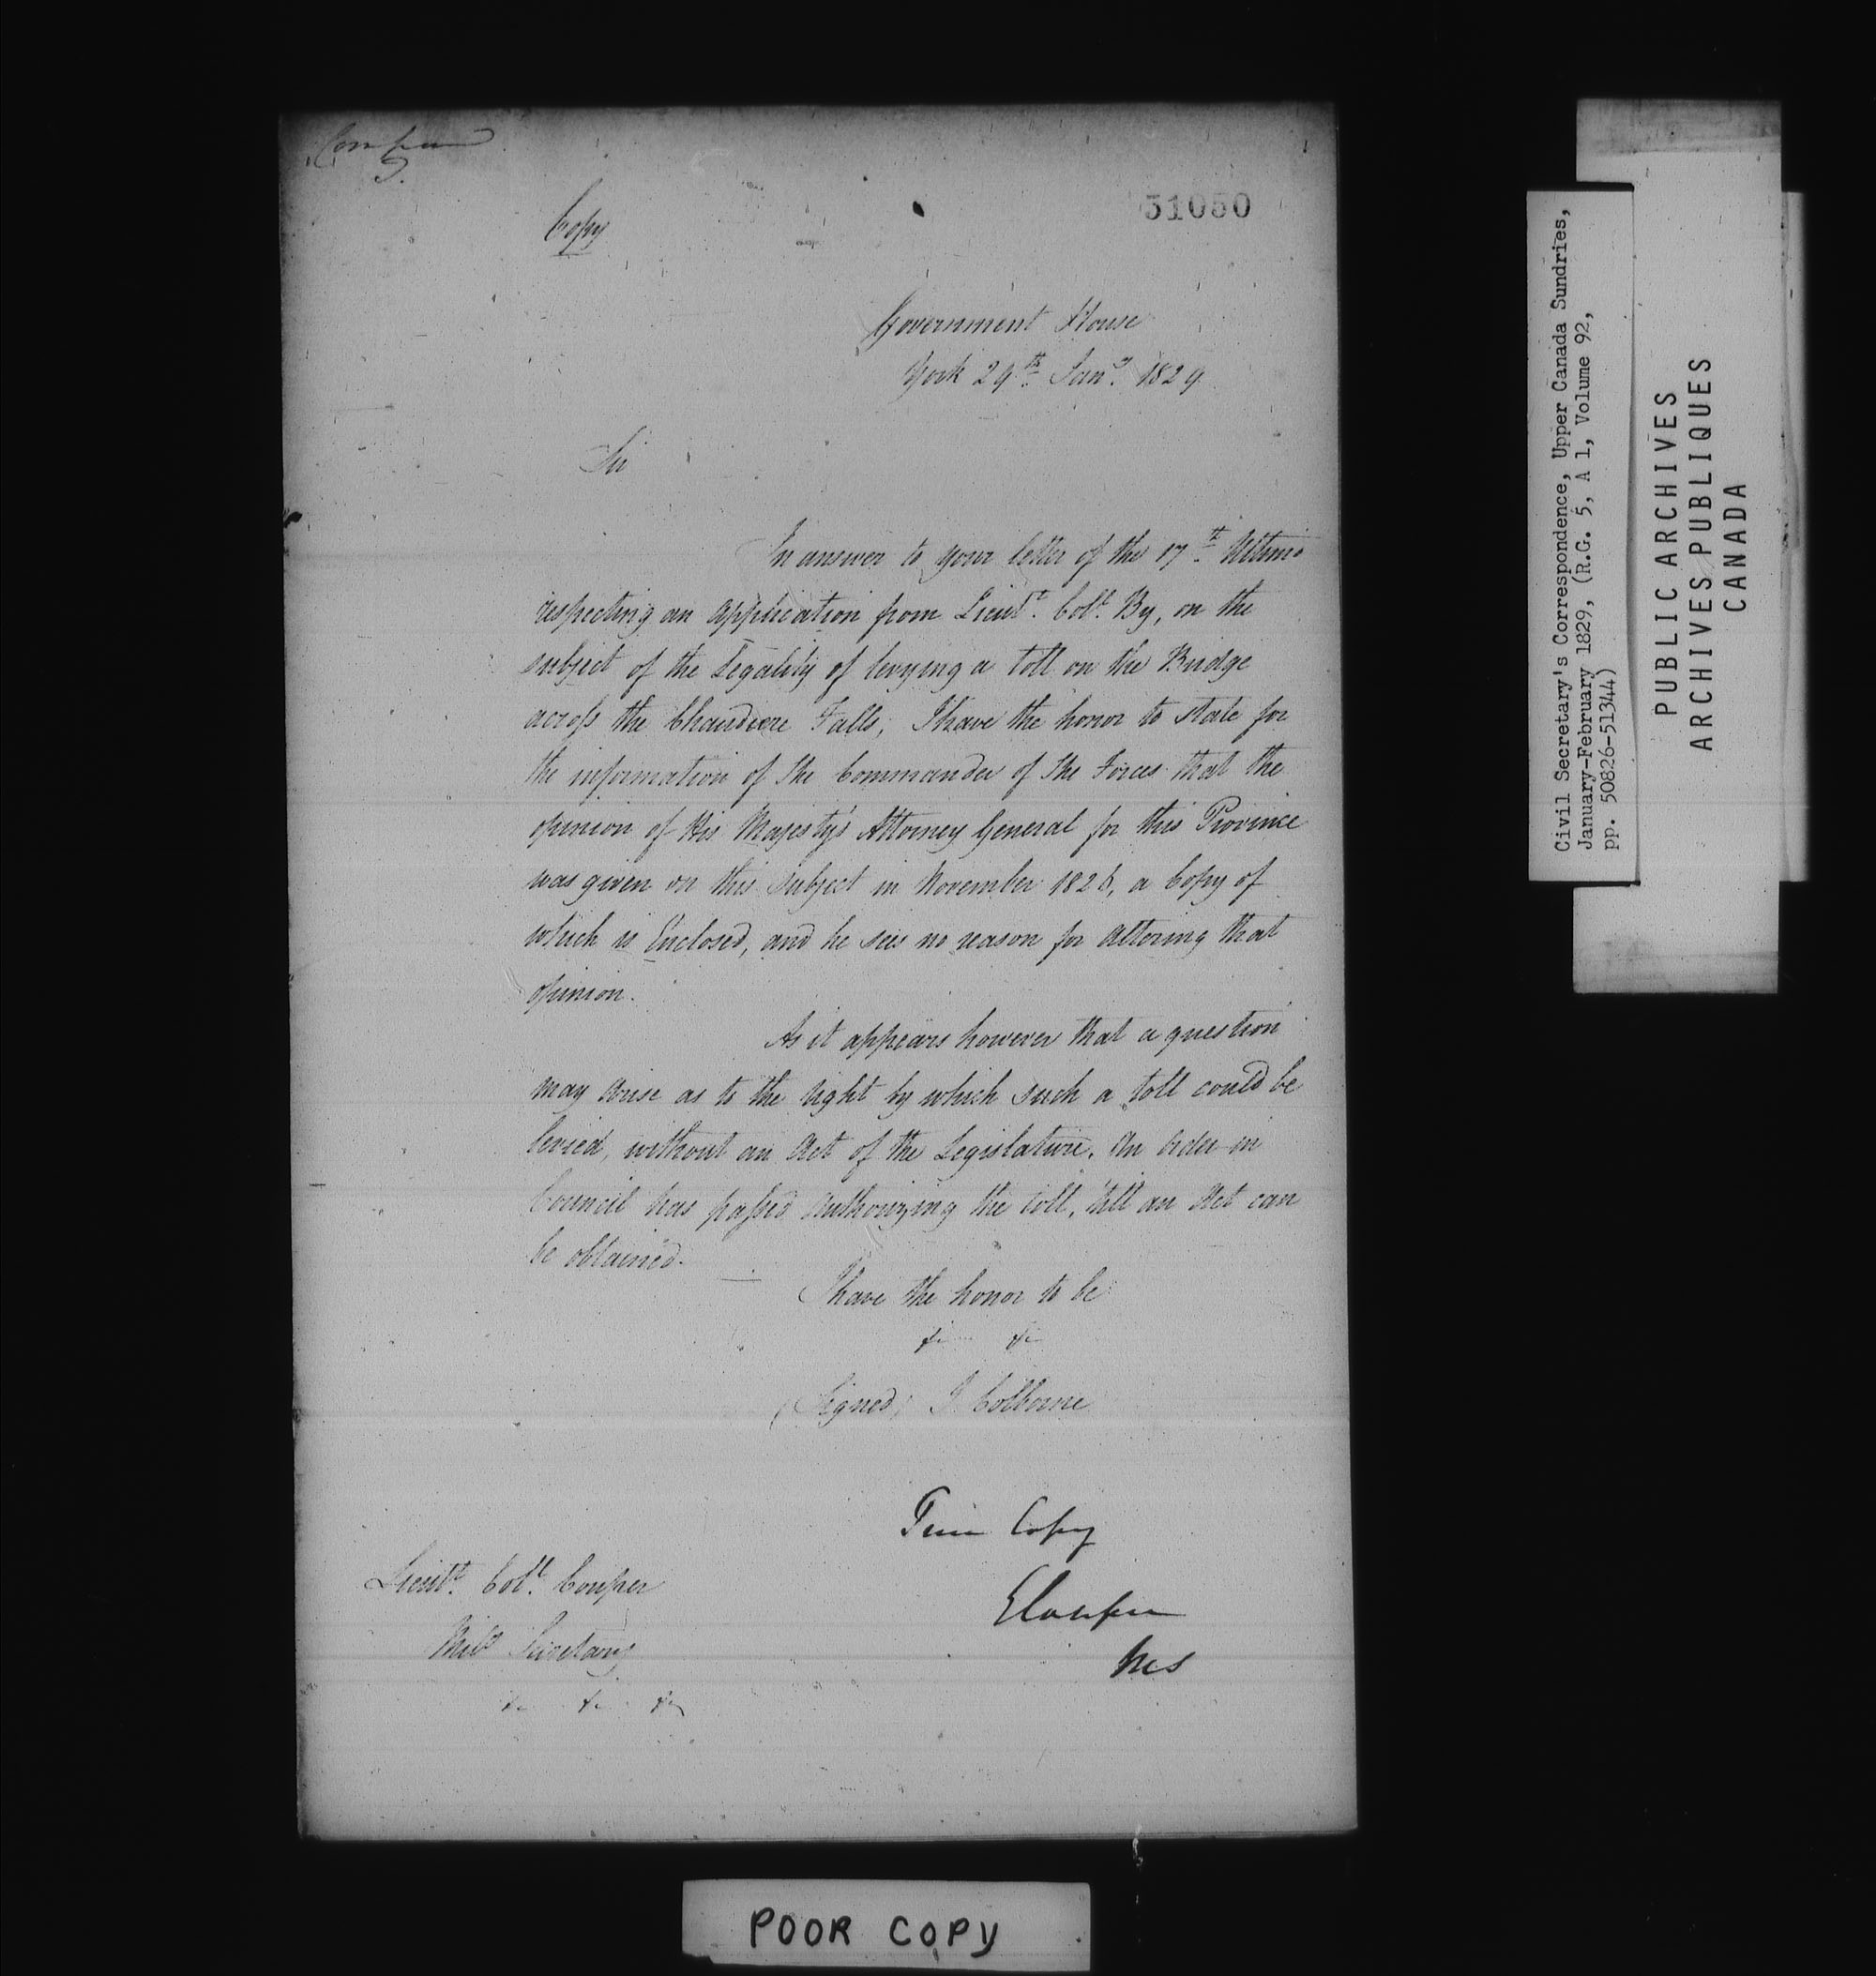 Copy
51050
Government House
York 29th Jany. 1829
Sir
In answer to your letter of the 17th Ultimo
respecting an application from Lieut. Coll. By, on the
subject of the Legality of levying a toll on the Bridge
across the Chaudiere Falls, I have the honor to state for
the information of the Commander of the Forces that the
opinion of His Majesty's Attorney General for this Province
was given on this subject in November 1828, a Copy of
which is Enclosed, and he sees no reason for altering that
opinion.
As it appears however that a question
may arise as to the right by which such a toll could be
levied, without an Act of the Legislature. An Order in
Council has passed Authorizing the toll, till an Act can
be obtained.
I have the honor to be
&c &c
(Signed) J. Colborne
True Copy
Lieut. Coll. Couper
Mily Secretary
&c &c &c
MS
POOR COPY
Civil Secretary's Correspondence, Upper Canada Sundries,
January-February 1829, (R.G. 5, A 1, Volume 92,
pp. 50826-51344)
PUBLIC ARCHIVES
ARCHIVES PUBLIQUES
CANADA